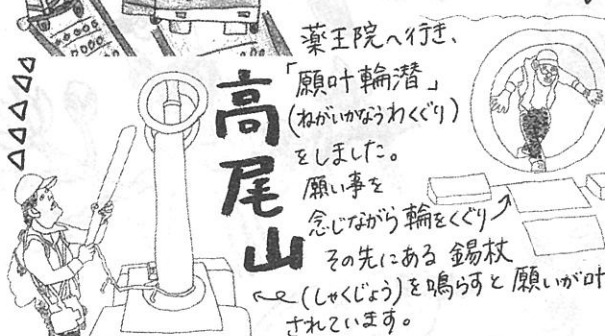 高尾山
薬王院へ行き、
「願叶輪潜」
(ねがいかなうわくぐり)
をしました。
願い事を
念じながら輪をくぐり
その先にある 錫杖
(しゃくじょう)を鳴らすと願いが叶
されています。